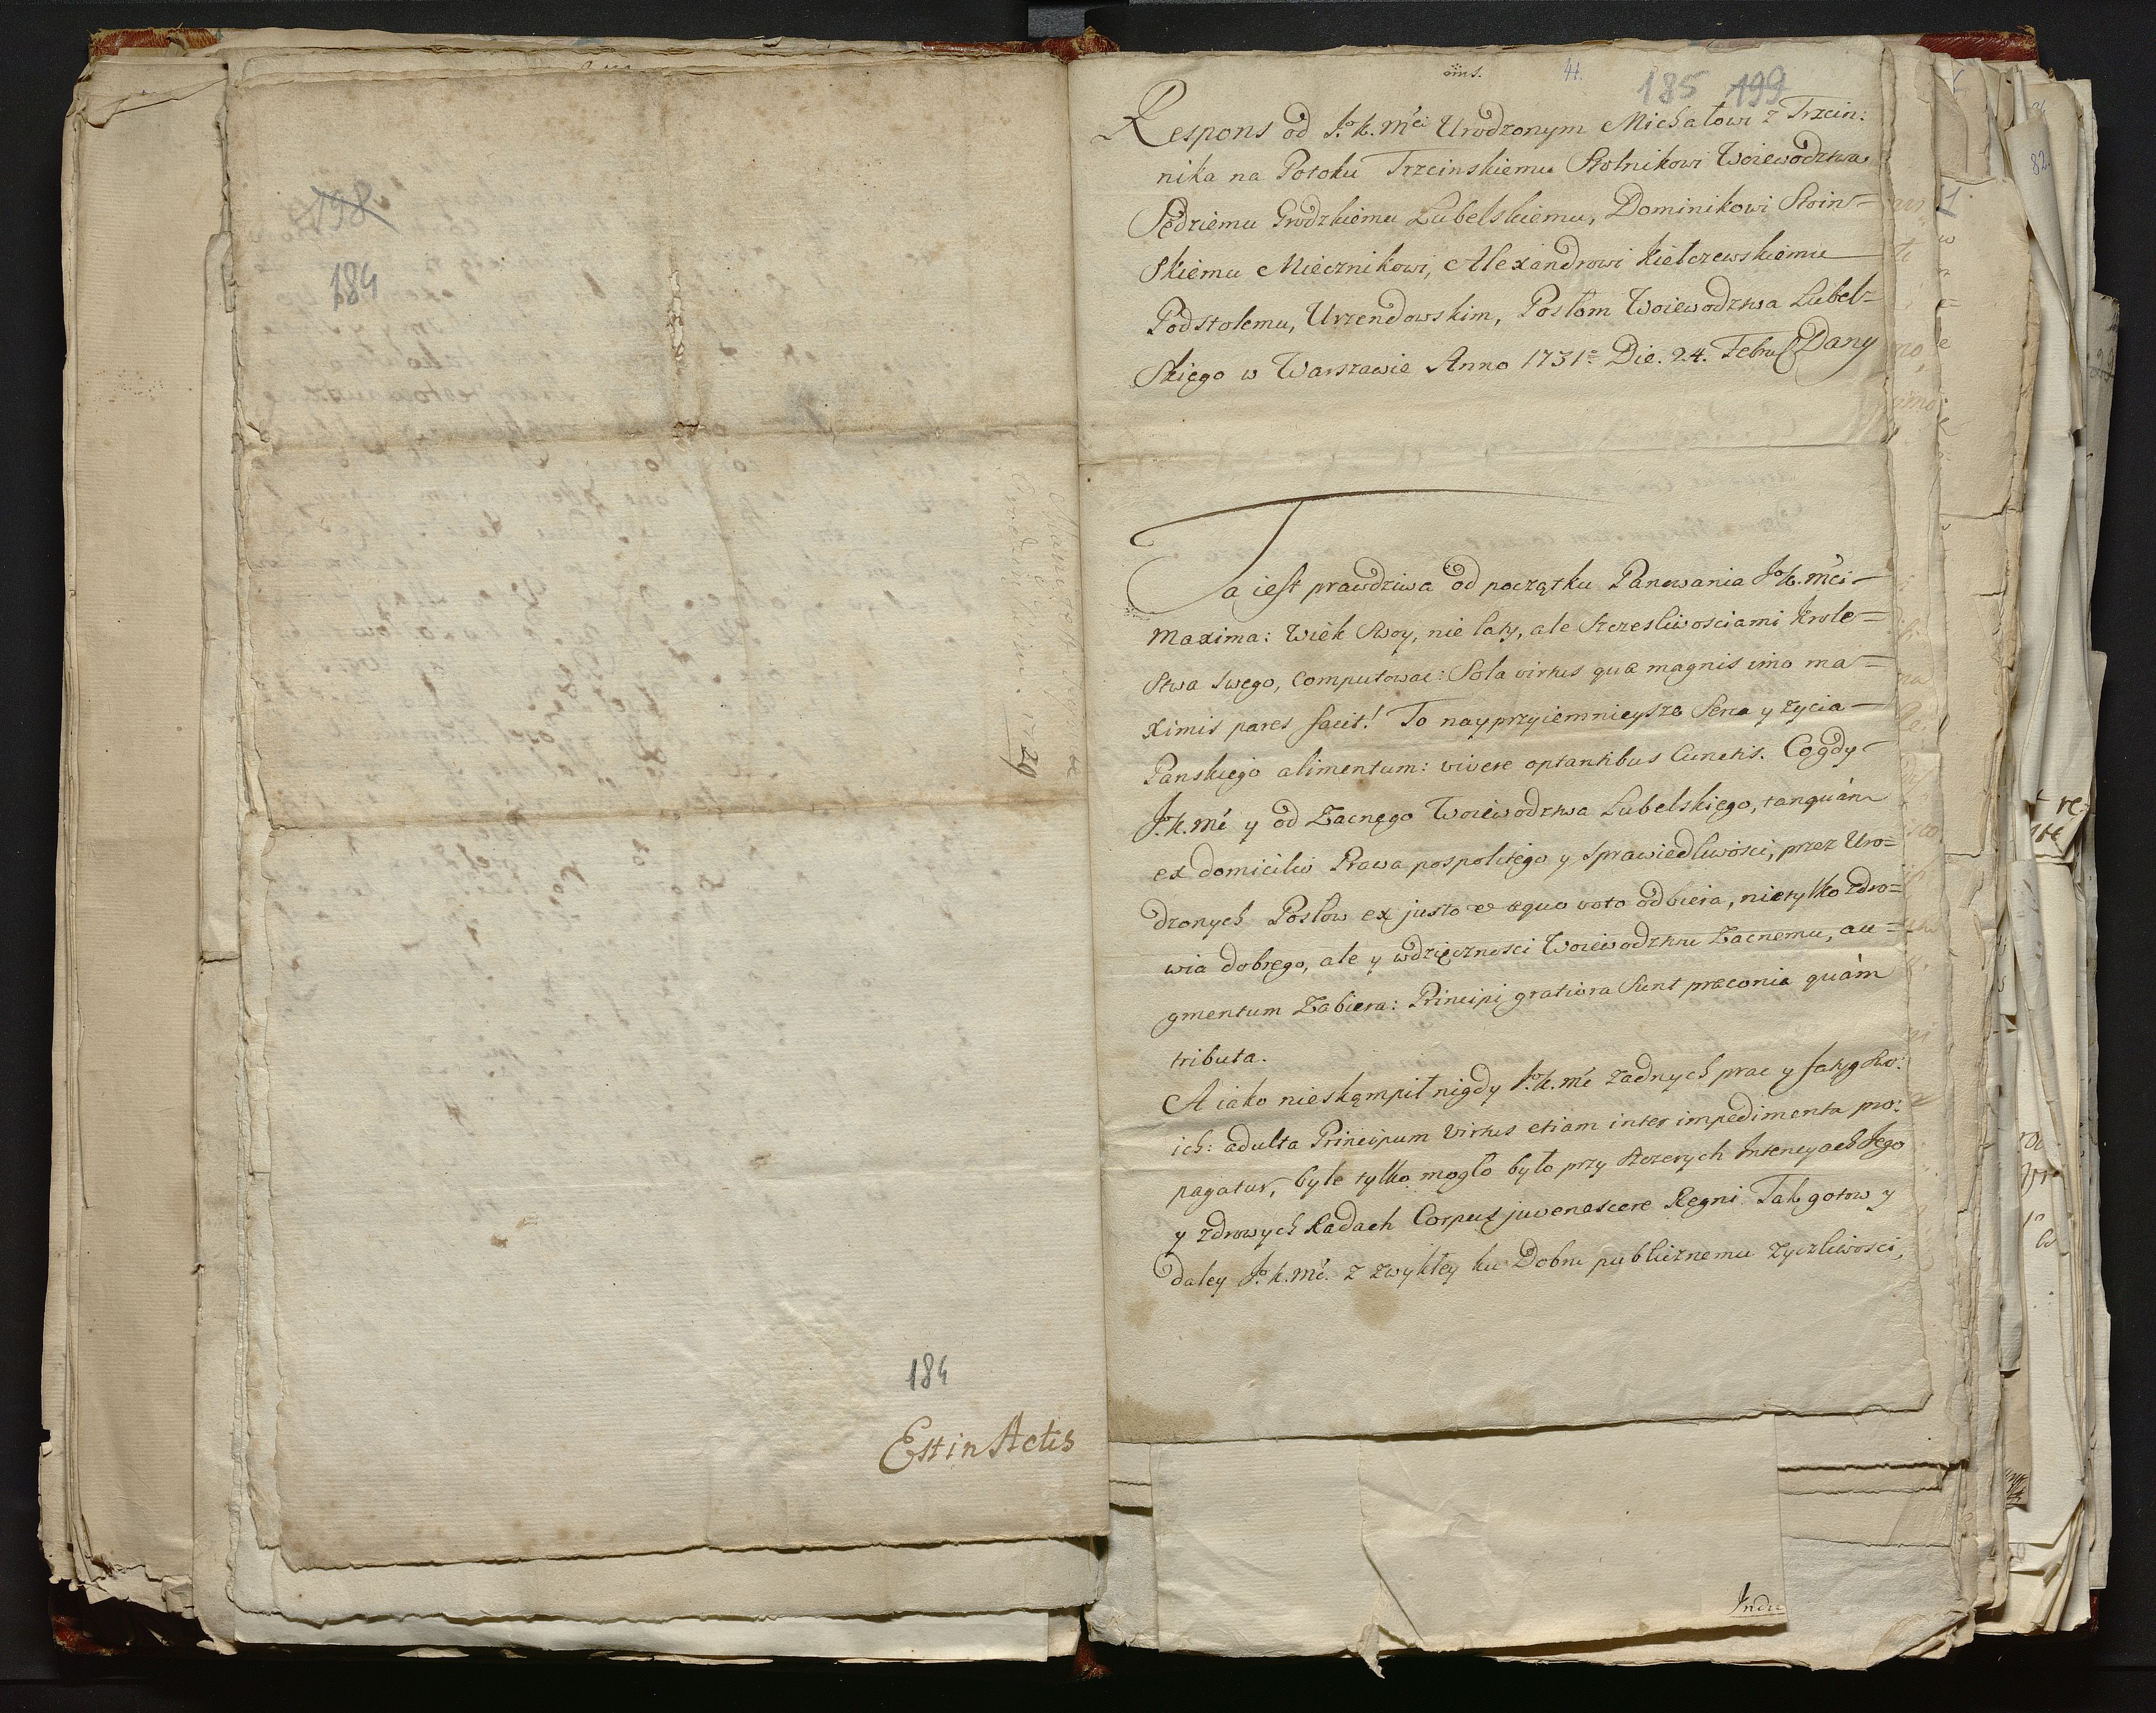 198
184
1729
184
Est in Actis
oms.
44.
185 199
Respons od J. K. Mci Urodzonym Michałowi z Trzcin:
nika na Potoku Trzcinskiemu Stolnikowi Woiewodztwa
Sędziemu Grodzkiemu Lubelskiemu, Dominikowi Stoin=
skiemu Miecznikowi, Alexandrowi Kiełczewskiemu
Podstolemu, Urzendowskim, Posłom Woiewodztwa Lubel=
skiego w Warszawie Anno 1731o Die. 24. Febru Dany
Ta iest prawdziwa od początku Panowania J. K. Mci
Maxima: Wiek Swoy, nie laty, ale Szczesliwosciami Krole=
stwa swego, computowac: Sola virtus qua magnis imo ma=
ximis pares facit! To nayprzyiemnieysze Serca y życia
Panskiego alimentum: vivere optantibus Cunctis. Co gdy
J. K. Mć y od Zacnego Woiewodztwa Lubelskiego, tanquàm
ex domicilio Prawa pospolitego y sprawiedliwosci, przez Uro=
dzonych Posłow ex justo et æquo voto odbiera, nietylko zdro=
wia dobrego, ale y wdzięcznosci Woiewodztwu Zacnemu, au=
gmentum Zabiera: Principi gratiora Sunt præconia quàm
tributa.
A iako nieskąmpił nigdy J. K. Mć zadnych prac y fatyg Swo:
ich: adulta Principum Virtus etiam inter impedimenta pro:
pagatur, byle tylko mogło było przy Szczerych Intencyach Jego
y zdrowych Radach Corpus juvenascere Regni. Tak gotow y
daley J. K. Mć. z zwykłey ku Dobru publicznemu życzliwosci,